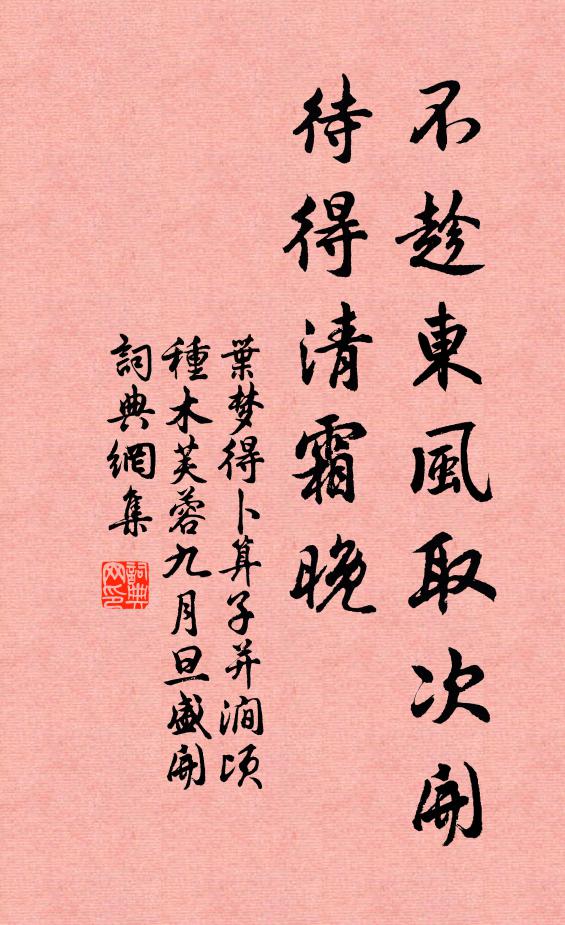 不趁東風取次開
待得清霜晚
葉梦得卜算子并澗頃
種木芙蓉九月旦盛開
詞典網集
詞典网印